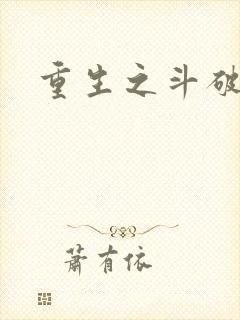 重生之斗破
萧有依